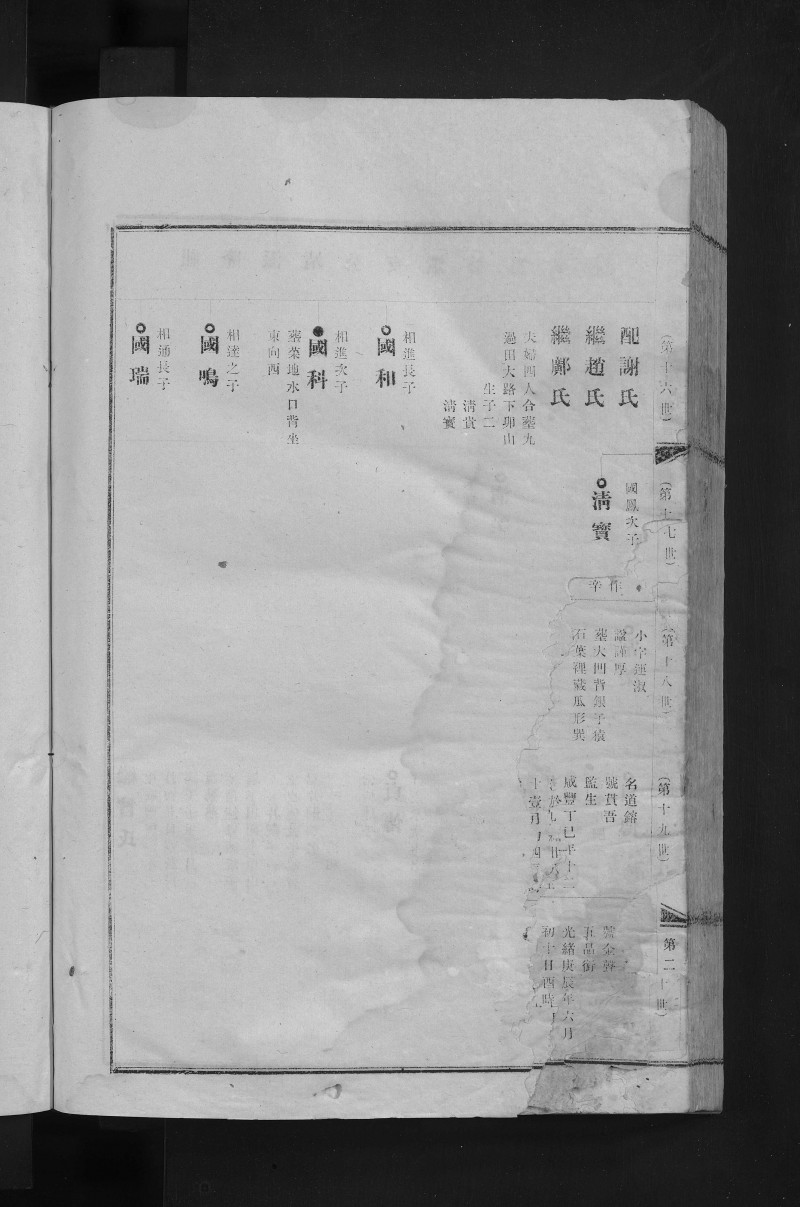 (第十六世)
配謝氏
繼趙氏
繼鄺氏
夫婦四人合塟九
過田大路下卯山
生子二
清賞
清寶
相進長子
國和
相進次子
國科
塟菜地水口背坐
東向西
相達之子
國鳴
相通長子
國瑞
(第十七世)
國鳳次子
清寶
作辛
(第十八世)
小字連淑
諡謹厚
塟大凹背銀子嶺
石葉裡藏瓜形巽
(第十九世)
名道鎔
號貫吾
監生
咸豐丁巳年十二
十壹月
第二十世)
號金聲
五品銜
光緒庚辰年六月
初十日酉時